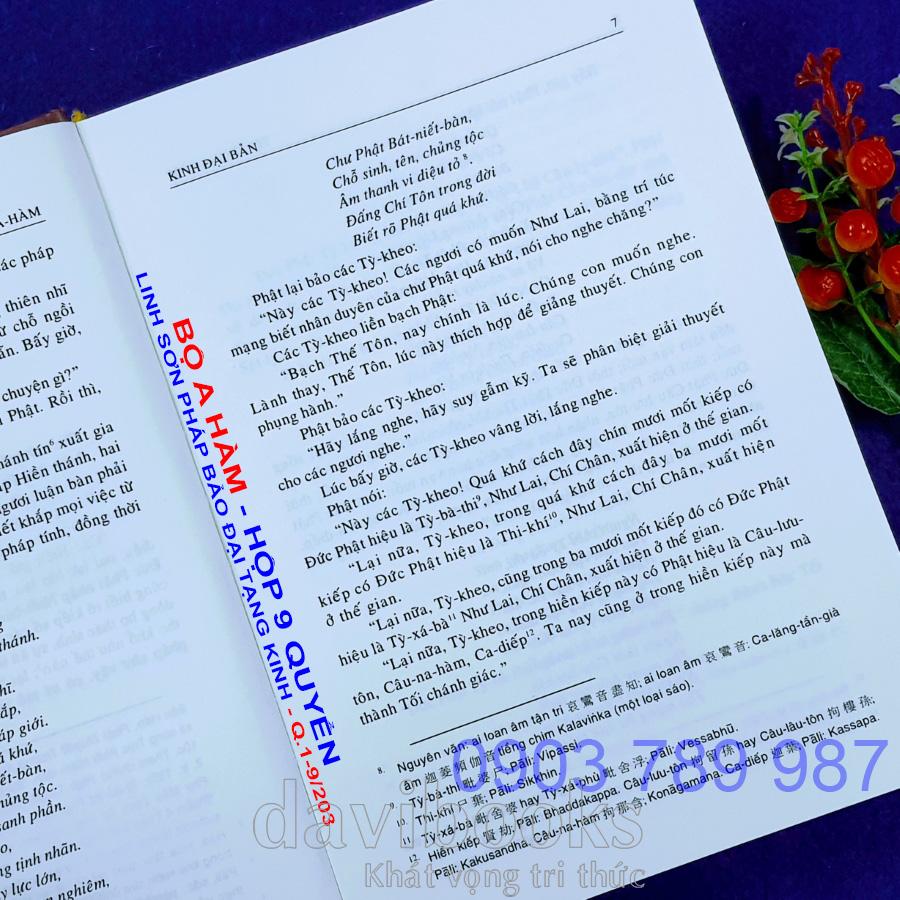 A-HÀM
ác pháp
thiên nhĩ
ừ chỗ ngồi
ấn. Bấy giờ,
chuyện gì?”
i Phật. Rồi thì,
hánh tín⁶ xuất gia
áp Hiền thánh, hai
gười luận bàn phải
iết khắp mọi việc từ
pháp tính, đồng thời
thánh.
hĩ.
ắp,
áp giới.
á khứ,
iết-bàn,
hủng tộc.
sanh phần.
g tịnh nhãn.
y lực lớn,
m nghiêm,
7
KINH ĐẠI BẢN
Chư Phật Bát-niết-bàn,
Chỗ sinh, tên, chủng tộc
Âm thanh vi diệu tỏ ⁸.
Đấng Chí Tôn trong đời
Biết rõ Phật quá khứ.
Phật lại bảo các Tỳ-kheo:
“Này các Tỳ-kheo! Các ngươi có muốn Như Lai, bằng trí túc
mạng biết nhân duyên của chư Phật quá khứ, nói cho nghe chăng?”
Các Tỳ-kheo liền bạch Phật:
“Bạch Thế Tôn, nay chính là lúc. Chúng con muốn nghe.
Lành thay, Thế Tôn, lúc này thích hợp để giảng thuyết. Chúng con
phụng hành.”
Phật bảo các Tỳ-kheo:
“Hãy lắng nghe, hãy suy gẫm kỹ. Ta sẽ phân biệt giải thuyết
cho các ngươi nghe.”
Lúc bấy giờ, các Tỳ-kheo vâng lời, lắng nghe.
Phật nói:
“Này các Tỳ-kheo! Quá khứ cách đây chín mươi mốt kiếp có
Đức Phật hiệu là Tỳ-bà-thi⁹, Như Lai, Chí Chân, xuất hiện ở thế gian.
“Lại nữa, Tỳ-kheo, trong quá khứ cách đây ba mươi mốt
kiếp có Đức Phật hiệu là Thi-khí¹⁰, Như Lai, Chí Chân, xuất hiện
ở thế gian.
“Lại nữa, Tỳ-kheo, cũng trong ba mươi mốt kiếp đó có Đức Phật
hiệu là Tỳ-xá-bà¹¹ Như Lai, Chí Chân, xuất hiện ở thế gian.
“Lại nữa, Tỳ-kheo, trong hiền kiếp này có Phật hiệu là Câu-lưu-
tôn, Câu-na-hàm, Ca-diếp¹². Ta nay cũng ở trong hiền kiếp này mà
thành Tối chánh giác.”
8. Nguyên văn: ai loan âm tận tri 哀鸞音盡知; ai loan âm 哀鸞音: Ca-lăng-tần-già
âm 迦菱頻伽音 tiếng chim Kalaviṅka (một loại sáo).
Tỳ-bà-thi 毗婆尸, Pāli: Vipassī.
10. Thi-khí 尸棄; Pāli: Sikkhin.
11. Tỳ-xá-bà 毗舍婆 hay Tỳ-xá-phù 毗舍浮, Pāli: Vessabhū.
12. Hiền kiếp 賢劫; Pāli: Bhaddakappa. Câu-lưu-tôn 拘留孫 hay Câu-lâu-tôn 拘樓孫;
Pāli: Kakusandha. Câu-na-hàm 拘那含; Konāgamana. Ca-diếp 迦葉, Pāli: Kassapa.
BỘ A HÀM - HỘP 9 QUYỂN
LINH SƠN PHÁP BẢO ĐẠI TẠNG KINH - Q.1-9/203
0903 789 987
davibooks
Khát vọng tri thức